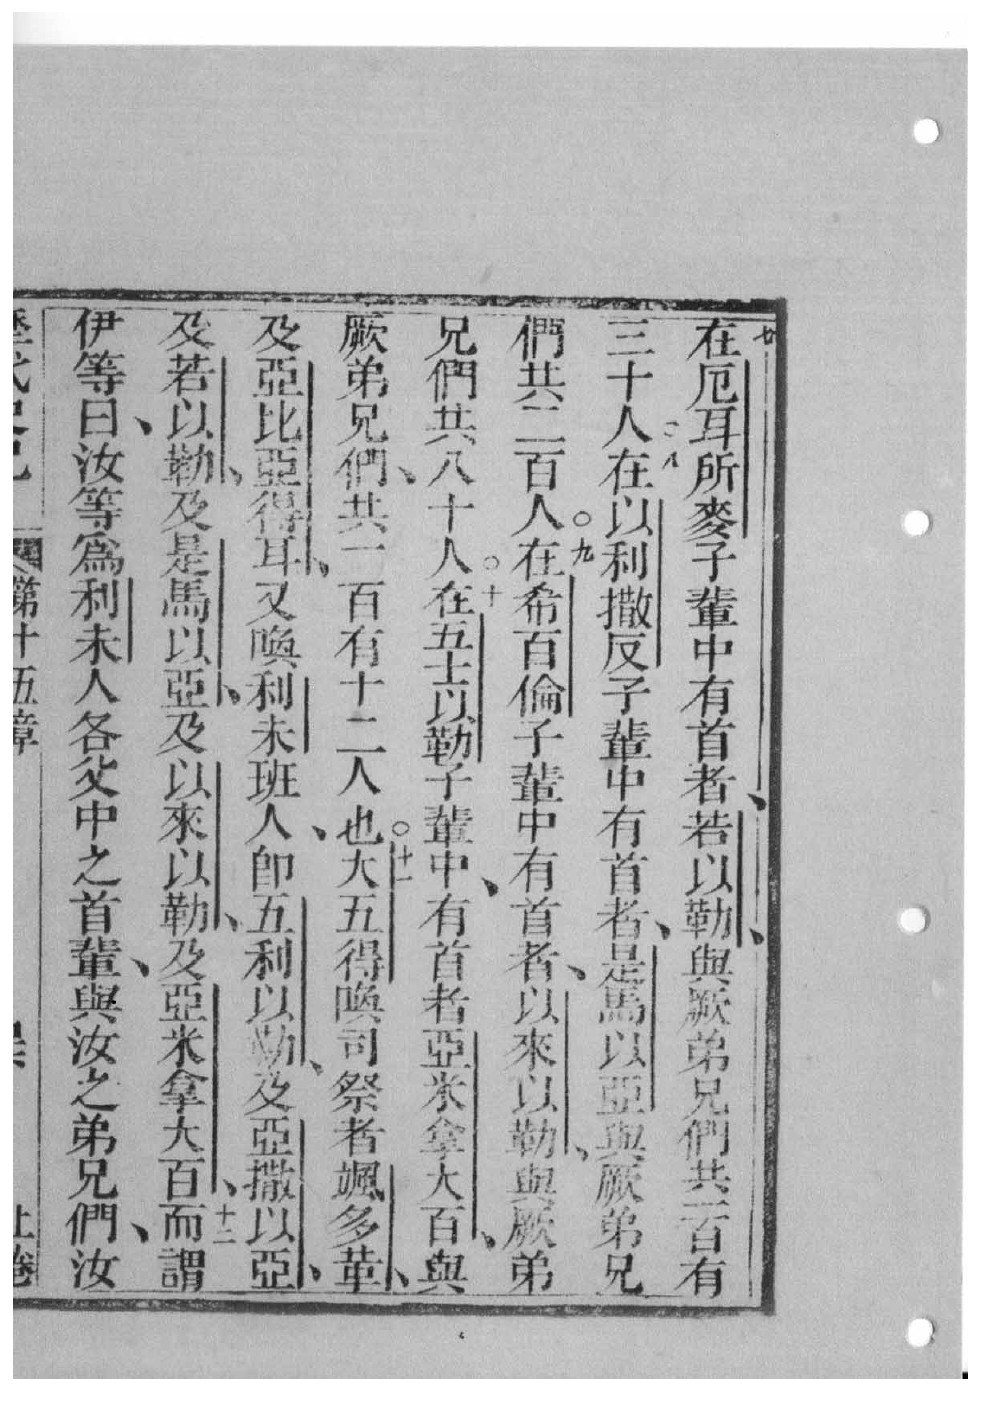 在厄耳所麥子輩中有首者、若以勒、與厥弟兄們共一百有
三十人○八在以利撒反子輩中有首者、是馬以亞與厥弟兄
們共二百人○九在希百倫子輩中有首者、以來以勒、與厥弟
兄們共八十人○十在五士以勒子輩中、有首者亞米拿大百、與
厥弟兄們、共一百有十二人也○十一大五得喚司祭者颯多革、
及亞比亞得耳、又喚利未班人、卽五利以勒、及亞撒以亞、
及若以勒、及是馬以亞、及以來以勒、及亞米拿大百、十二而謂
伊等曰、汝等爲利未人各父中之首輩、與汝之弟兄們、汝
第十五章